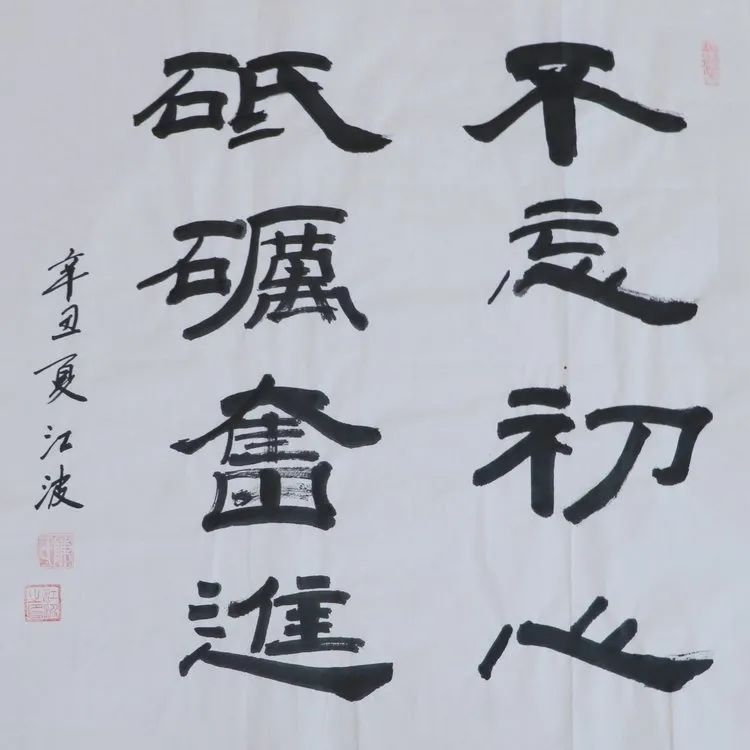 不忘初心
砥礪奮進
辛丑夏江波